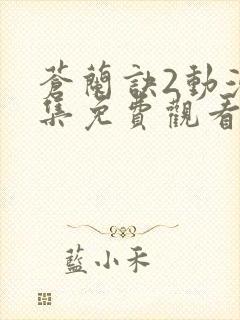 蒼蘭訣2動
集免費觀看
藍小禾